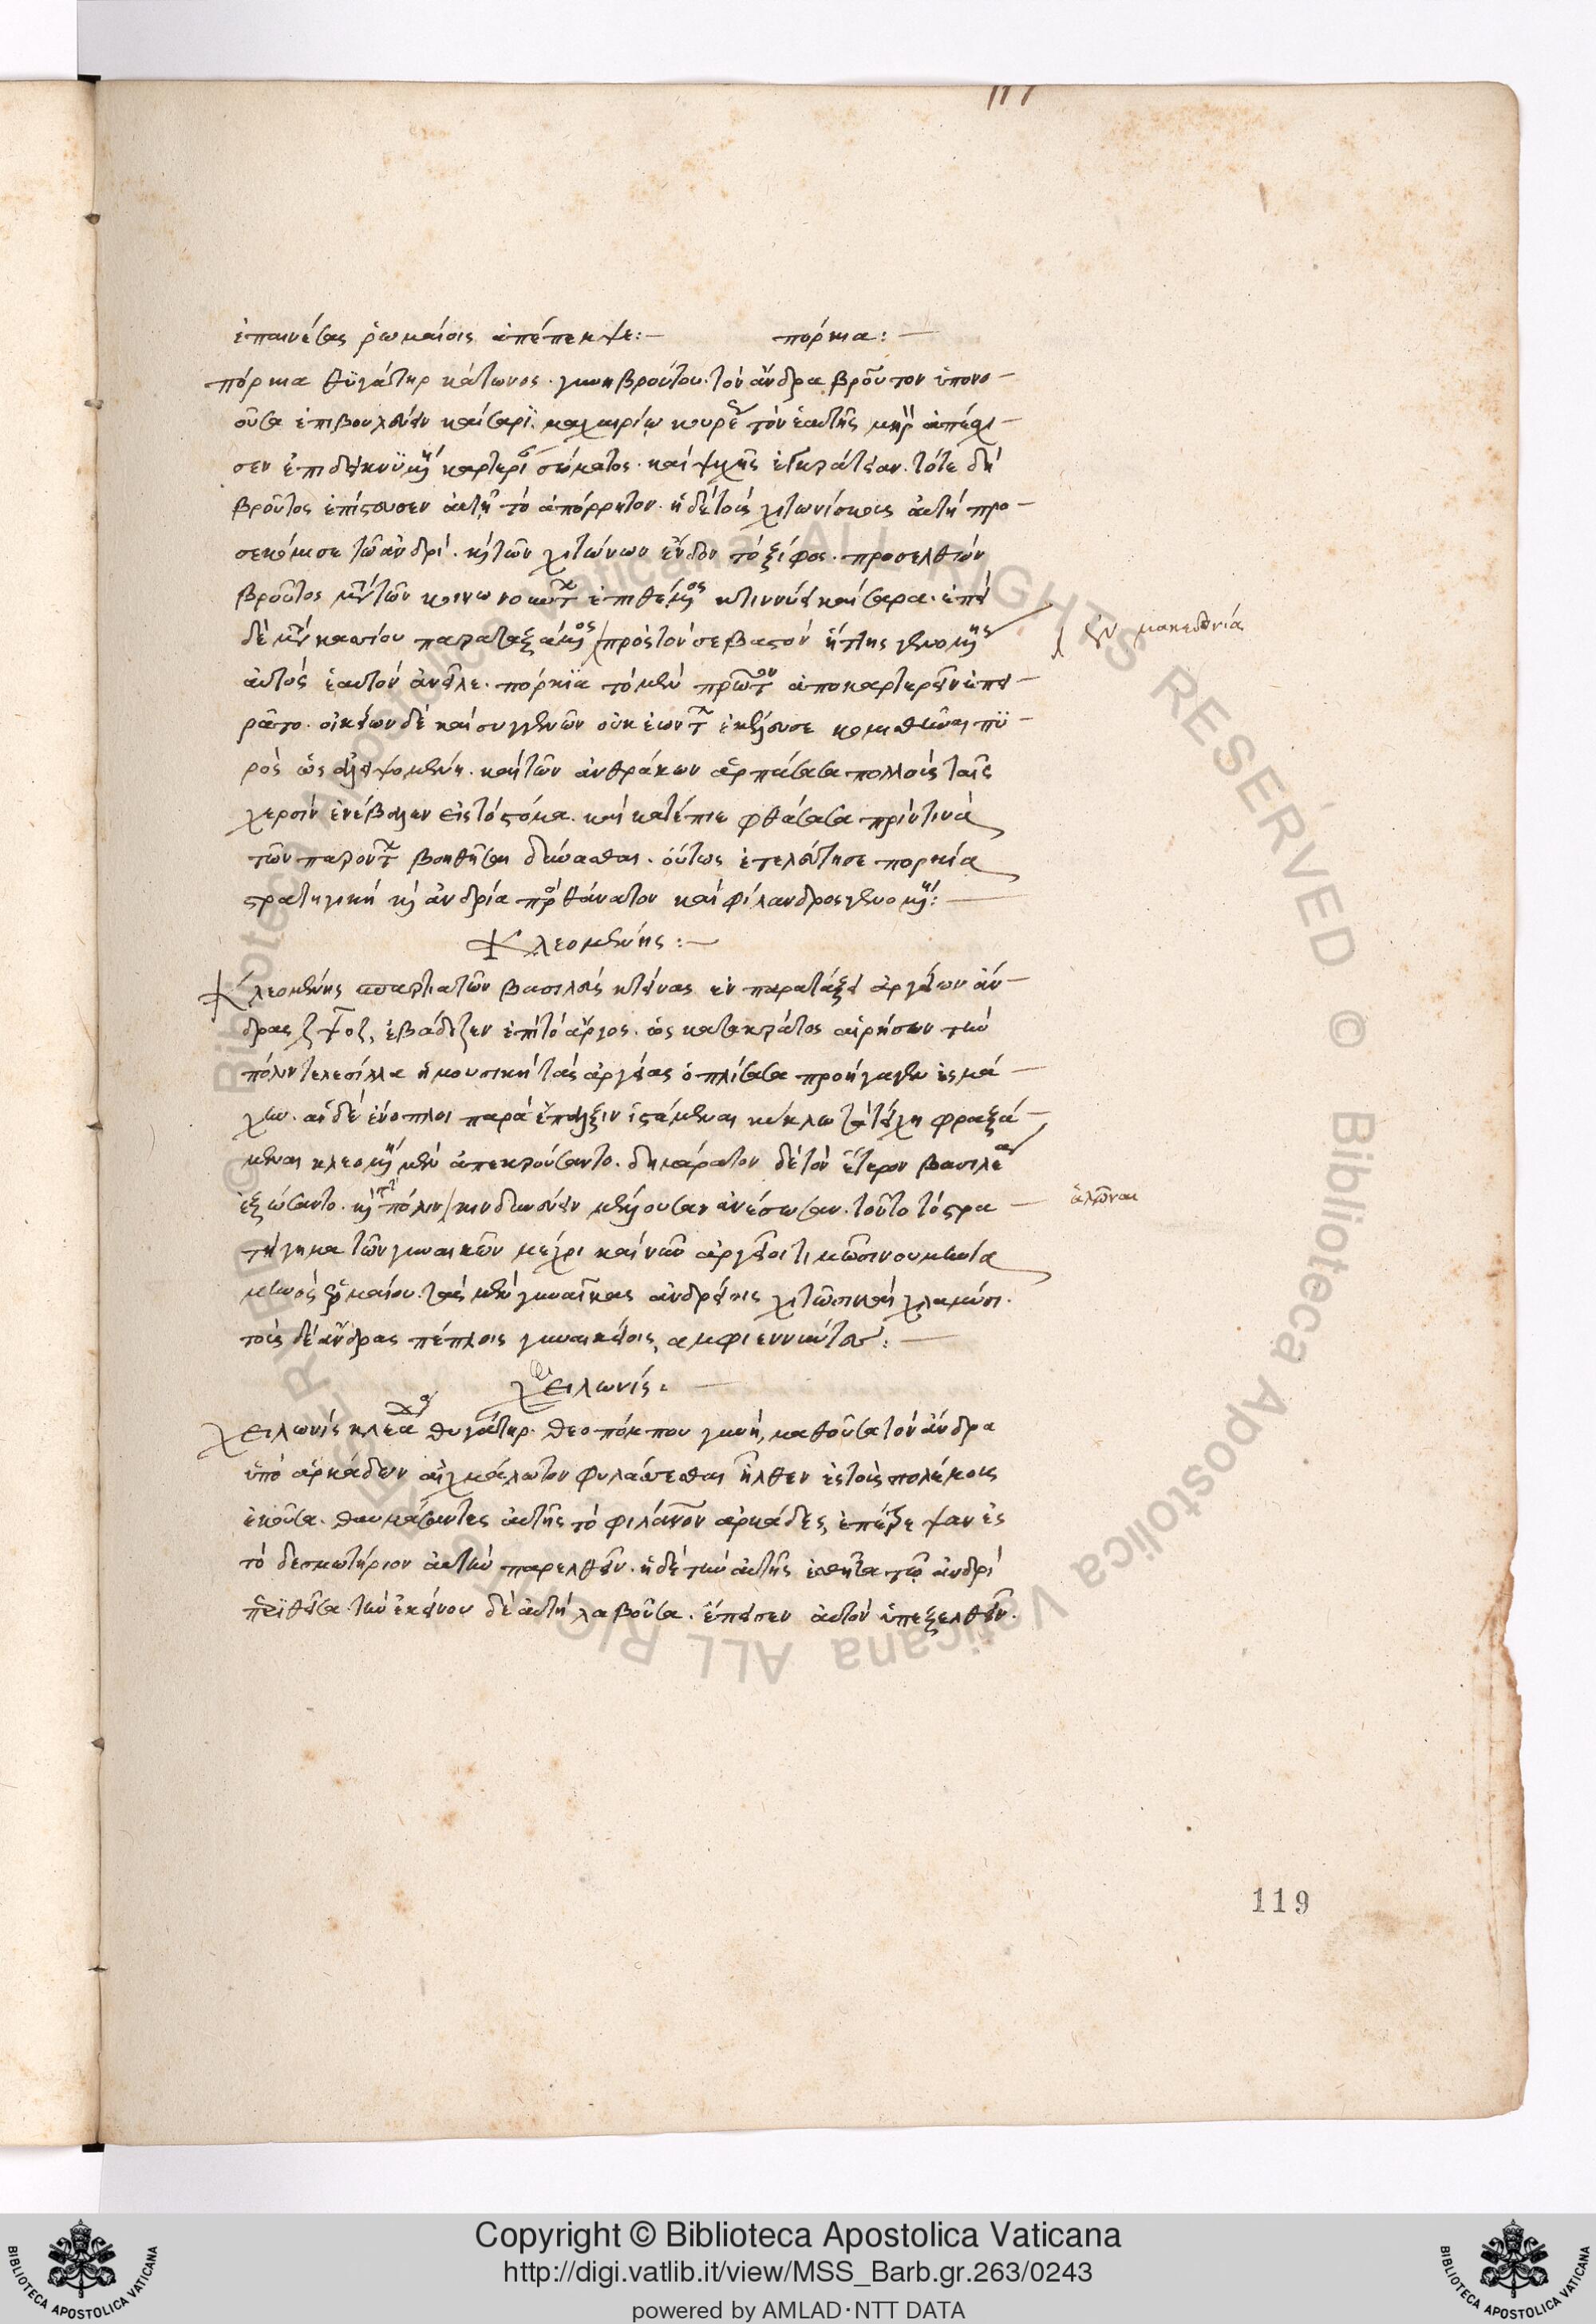 ἐπαινέσας ῥωμαίοις ἀπέπεμψε:— πορκια:—
πόρκια θϋγάτηρ κάτωνος. γυνη βρούτου. τὸν ἄνδρα βροῦτον ὑπονο-
οῦσα ἐπιβουλεύειν καίσαρϊ. μαχαιρίῳ τὸν ἑαυτῆς
σεν καὶ ψυχῆς ἐγκράτειαν. τότε δὴ
βροῦτος ἐπίστευσεν ἀυτῆ τὸ ἀπόρρητον. ἡ δὲ τοὶς χιτωνίσκοις ἀυτὴ προ-
σεκόμισε τῶ ἀνδρί. κ τῶν χιτώνων ἔνδον τὸ ξίφος. προσελθὼν
βροῦτος μετὰ τῶν ἐπιθέμενος κτιννύει καίσαρα. ἐπεὶ
δὲ μετὰ κασσίου παραταξάμενος πρὸς τὸν σεβαστὸν ἥττης γενομένης
ἐν μακεδονία
ἀυτὸς ἑαυτὸν ἀνεῖλε. πόρκϊα τὸ μὲν πρῶτον ἀποκαρτερεῖν ἐπει-
ρᾶτο. οἰκείων δὲ καὶ συγγενῶν οὐκ ἐώντων ἐκέλευσε κομισθῆναι πϋ-
ρὸς ὡς ἀλειψομένη. καὶ τῶν ἀνθράκων ἁρπάσασα πολλοὺς ταῖς
χερσὶν ἐνέβαλεν εἰς τὸ στόμα. καὶ κατέπιε φθάσασα πρὶν τινὰ
τῶν παρόντων βοηθῆσαι δύνασθαι. ὅυτως ἐτελεύτησε πορκία
στρατηγικὴ κ ἀνδρία πρὸς θάνατον καὶ φίλανδρος γενομένη:—
Κλεομένης:—
Κλεομένης σπαρτιατῶν βασιλεὺς κτείνας ἐν παρατάξει ἀργείων ἄν-
δρας ἐβάδιζεν ἐπὶ τὸ ἄργος. ὡς κατακράτος αἱρήσων τὴν
πόλιν τελεσίλλα ἡ μουσικὴ τὰς ἀργείας ὁπλίσασα προήγαγεν ἐς μά-
χην. αἱ δὲ ἔνοπλοι παρὰ ἔπαλξιν ἱστάμεναι κύκλω τὰ τείχη φραξά-
μεναι κλεομένη μὲν ἀπεκρούσαντο. δημάρατον δὲ τὸν ἕτερον βασιλέα
ἐξώσαντο. κ τὴν πόλιν κινδυνεύειν μέλλουσαν ἀνέσωσαν. τοῦτο τὸ στρα-
ἁλῶναι
τήγημα τῶν γυναικῶν μέχρι καὶ νῦν ἀργεῖοι τιμῶσι νουμηνία
μηνὸς ἑρμαίου. τὰς μὲν γυναῖκας ἀνδρείοις χιτῶσι καὶ χλαμύσι.
τοὺς δὲ ἄνδρας πέπλοις γυναικείοις ἀμφιεννύντες:—
χειλωνίς:—
χειλωνὶς θυγάτηρ. θεοπόμπου γυνή, μαθοῦσα τὸν ἄνδρα
ὑπὸ ἀρκάδων αἰχμάλωτον φυλάττεσθαι ἦλθεν ἐς τοὺς πολέμους
ἑκοῦσα. θαυμάσαντες ἀυτῆς τὸ φιλάνδρον ἀρκάδες ἐπέτρεψαν ἐς
τὸ δεσμωτήριον ἀυτὴν παρελθεῖν. ἡ δὲ τὴν ἀυτῆς ἐσθῆτα τῶ ἀνδρὶ
περϊθεῖσα τὴν ἐκείνου δὲ ἀυτὴ λαβοῦσα. ἔπεισεν ἀυτὸν ὑπεξελθεῖν.
119
Copyright © Biblioteca Apostolica Vaticana
http://digi.vatlib.it/view/MSS_Barb.gr.263/0243
powered by AMLAD·NTT DATA
BIBLIOTECA APOSTOLICA VATICANA
BIBLIOTECA APOSTOLICA VATICANA